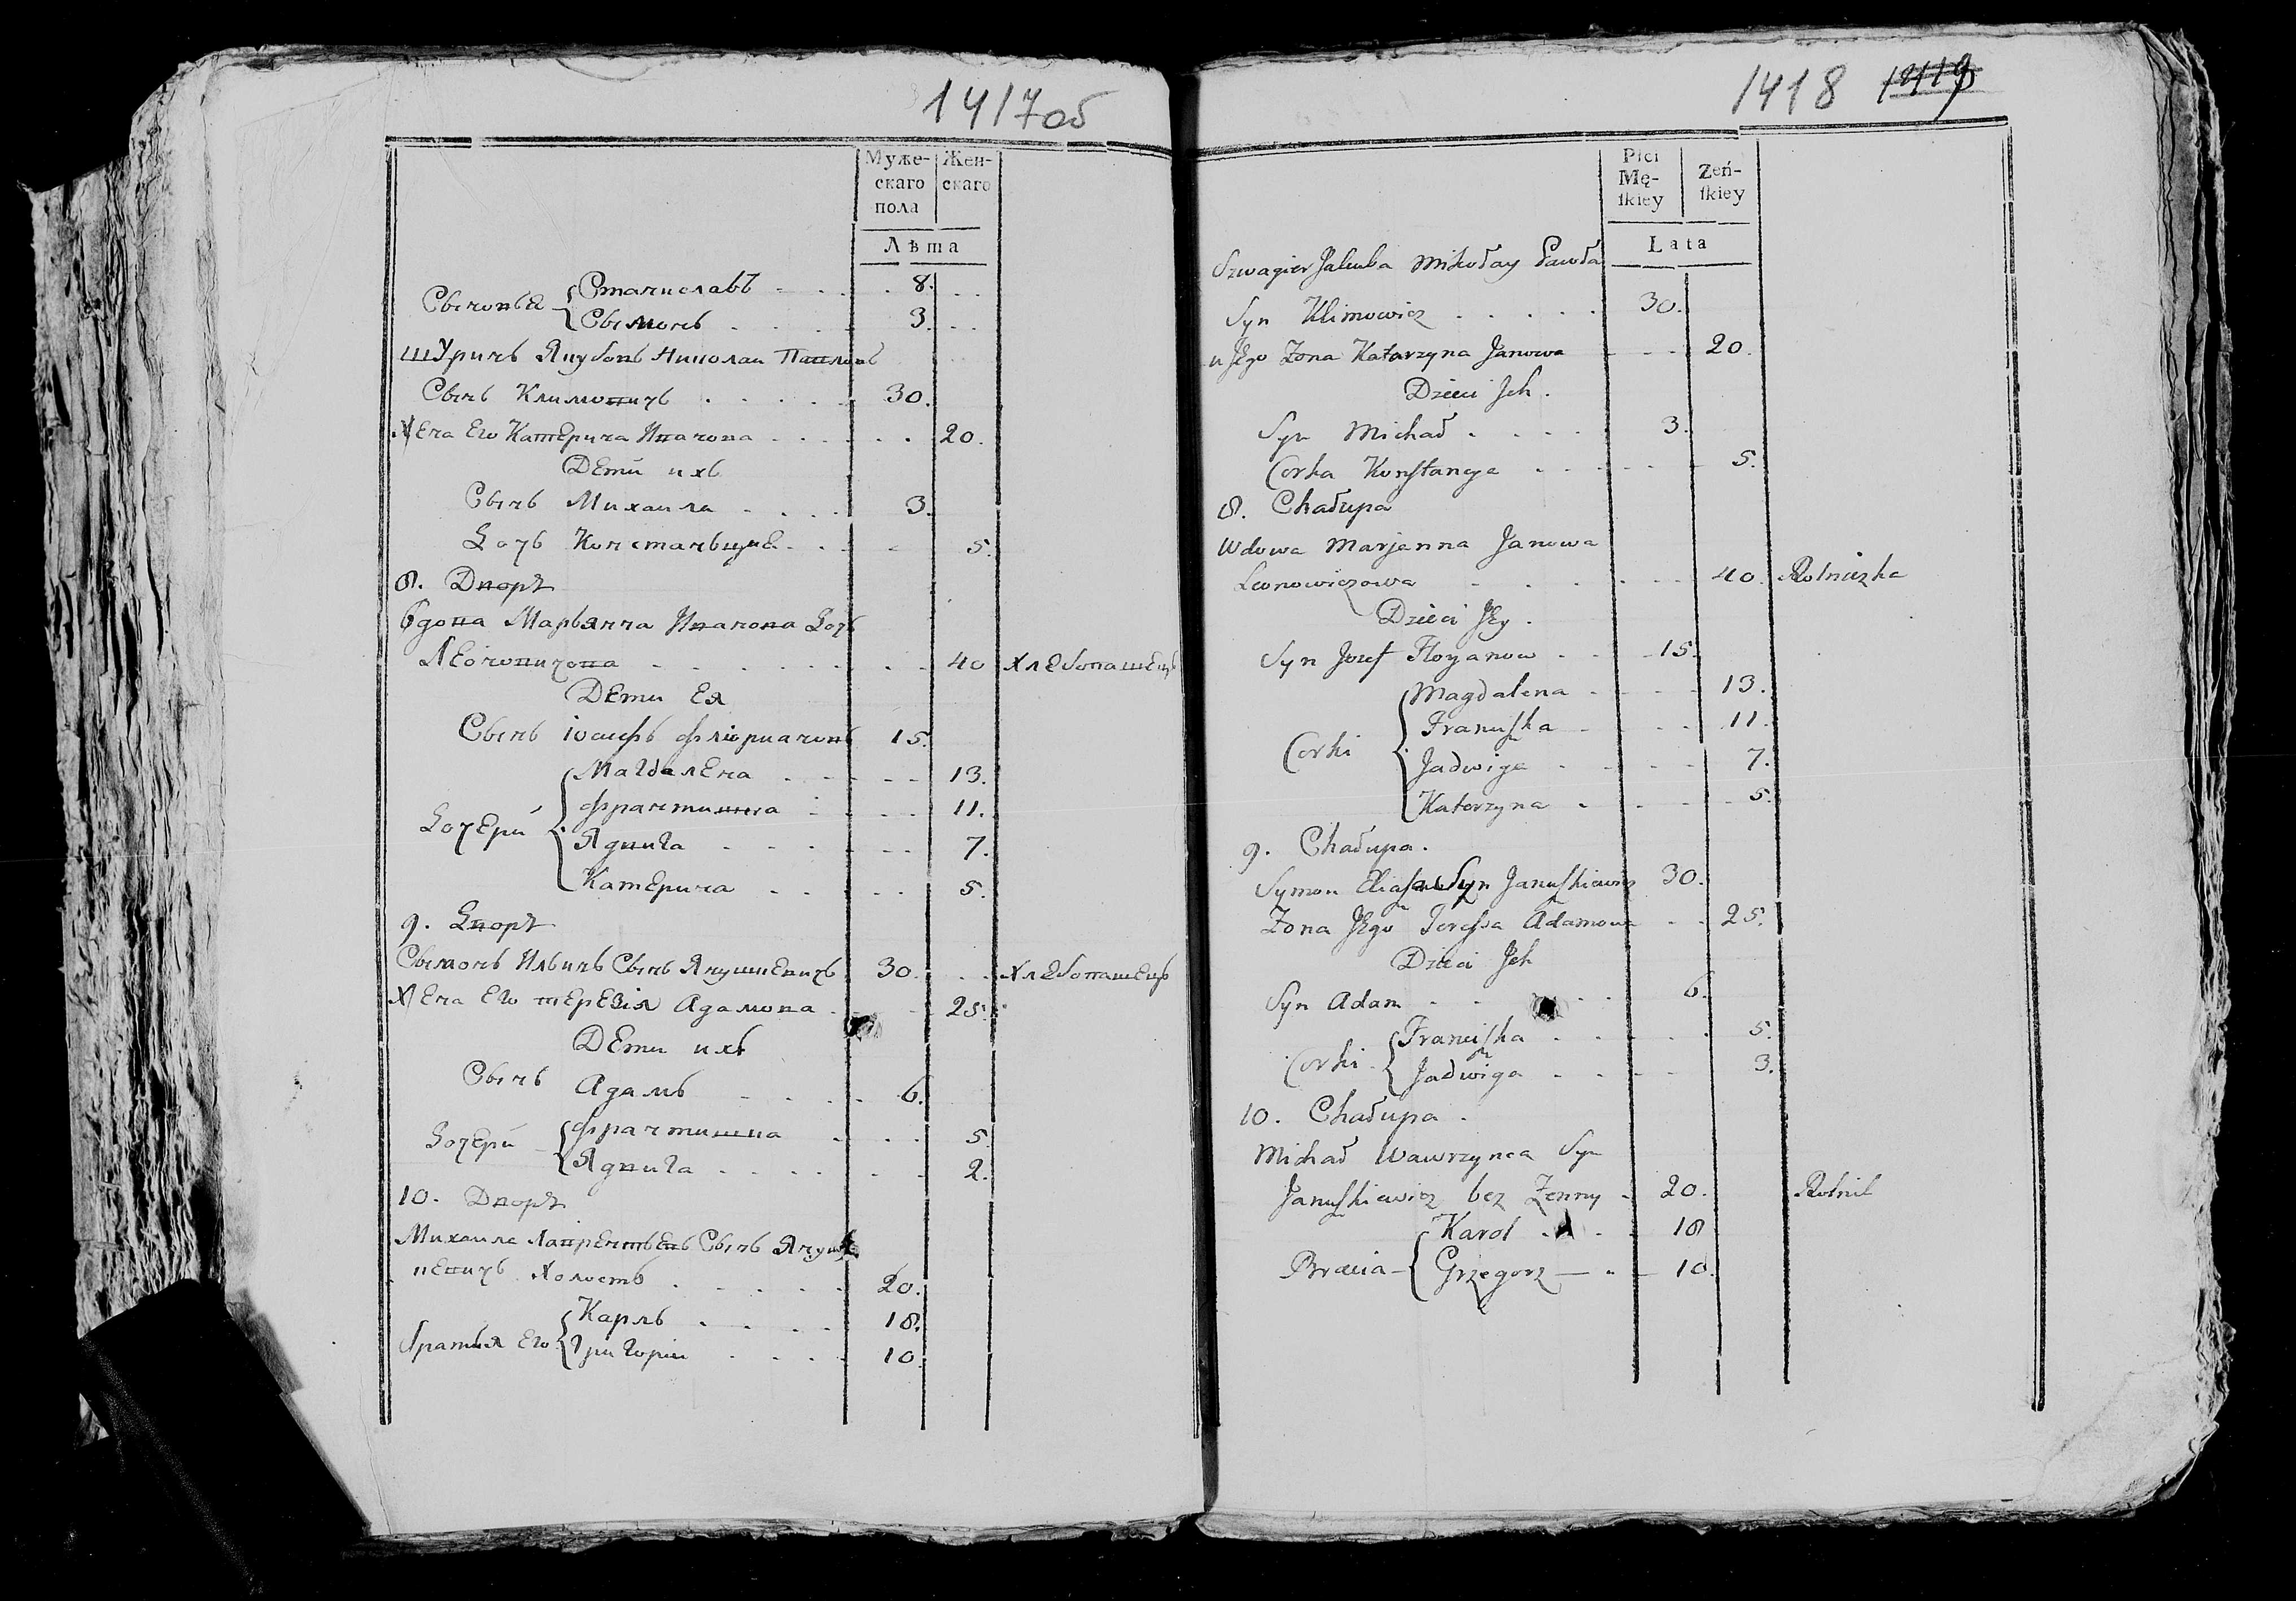 1417об
Муже-
скаго
пола
Жен-
скаго
Лѣта
Сыновья
Станиславъ 8.
Сымонъ 3.
Шуринъ Якубовъ Николаи Павловъ
Сынъ Климовичъ 30.
Жена Его Катерина Иванова 20.
Дети ихъ
Сынъ Михаила 3.
Дочь Констанъцие 5.
8. Дворъ
Вдова Марьянна Иванова Дочь
Леоновичова 40 Хлебопашецъ
Дети Ея
Сынъ Іосифъ Флоріановъ 15.
Дочери
Магдалена 13.
Франтишка 11.
Ядвига 7.
Катерина 5.
9. Дворъ
Сымонъ Ильинъ Сынъ Янушкевичъ 30. Хлебопашецъ
Жена Его Терезія Адамова 25.
Дети ихъ
Сынъ Адамъ 6.
Дочери
Франтишка 5.
Ядвига 2.
10. Дворъ
Михаила Лаврентьевъ Сынъ Януш
кевичъ Холостъ 20.
братья Его
Карлъ 18.
Григории 10.
1418 1419
Płci
Mę-
ſkiey
Zeń-
ſkiey
Lata
Szwagier Jakuba Mikołay Pawła
Syn Klimowicz 30.
u Jego Zona Katarzyna Janowa 20.
Dzieci Jch.
Syn Michał 3.
Corka Konſtancya 5.
8. Chałupa
Wdowa Marjanna Janowa
Leonowiczowa 40. Rolniczka
Dzieci Jey.
Syn Jozef Floryanow 15.
Corki
Magdalena 13.
Franciſzka 11.
Jadwiga 7.
Katarzyna 5.
9. Chałupa.
Symon Eliaſza Syn Januſzkiewicz 30.
Zona Jego Tereſsa Adamowa 25.
Dzieci Jch
Syn Adam 6.
Corki
Franciſzka 5.
Jadwiga 3.
10. Chałupa.
Michał Wawrzynca Syn
Januſzkiewicz bez Zenny 20. Rolnik
Bracia
Karol 18
Grzegorz 10.